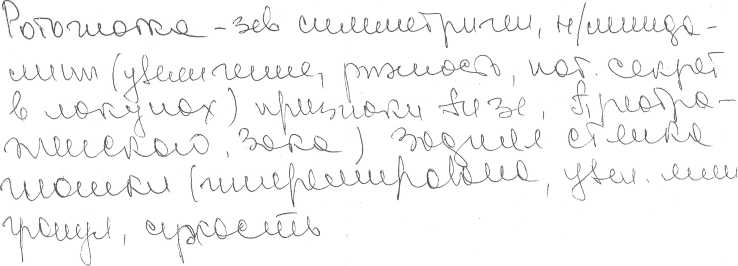 Ротоглотка - зев симметричен, н/минда-
лины (увеличение, рыхлость, пат. секрет
в лакунах) признаки Гизе, Преобра-
женского, Зака) задняя стенка
глотки (гиперемирована, увел. лим
гранул, сухость